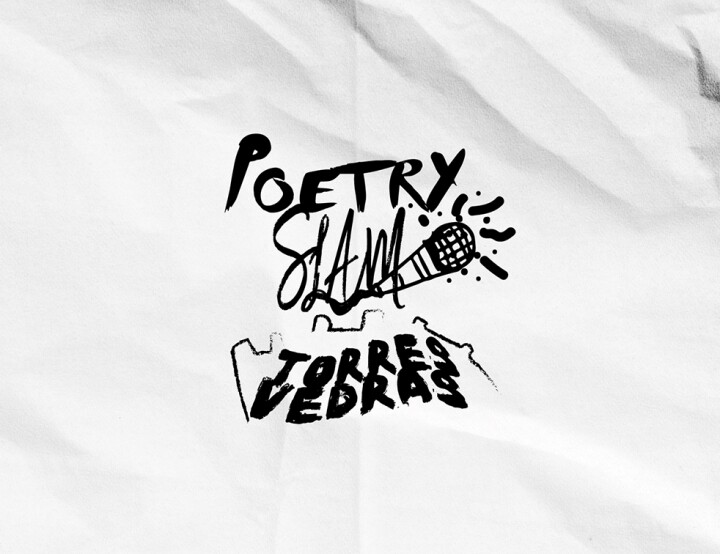 POETRY
SLAM
TORRES
VEDRAS